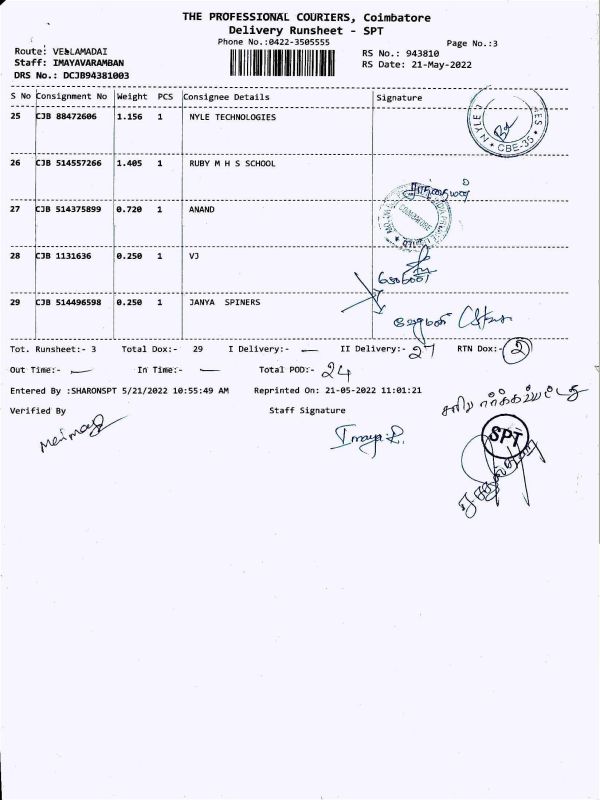 THE PROFESSIONAL COURIERS, Coimbatore
Delivery Runsheet - SPT
Phone No.:0422-3505555
Page No.:3
Route: VELLAMADAI
Staff: IMAYAVARAMBAN
DRS No.: DCJB94381003
RS No.: 943810
RS Date: 21-May-2022
S No Consignment No Weight PCS Consignee Details Signature
25 CJB 88472606 1.156 1 NYLE TECHNOLOGIES
NYLE
CBE-35
26 CJB 514557266 1.405 1 RUBY M H S SCHOOL
27 CJB 514375899 0.720 1 ANAND
COIMBATORE
28 CJB 1131636 0.250 1 VJ
29 CJB 514496598 0.250 1 JANYA SPINERS
Tot. Runsheet:- 3 Total Dox:- 29 I Delivery:- — II Delivery:- 27 RTN Dox:- 2
Out Time:- — In Time:- — Total POD:- 24
Entered By :SHARONSPT 5/21/2022 10:55:49 AM Reprinted On: 21-05-2022 11:01:21
Verified By Staff Signature
Imaya.R.
SPT